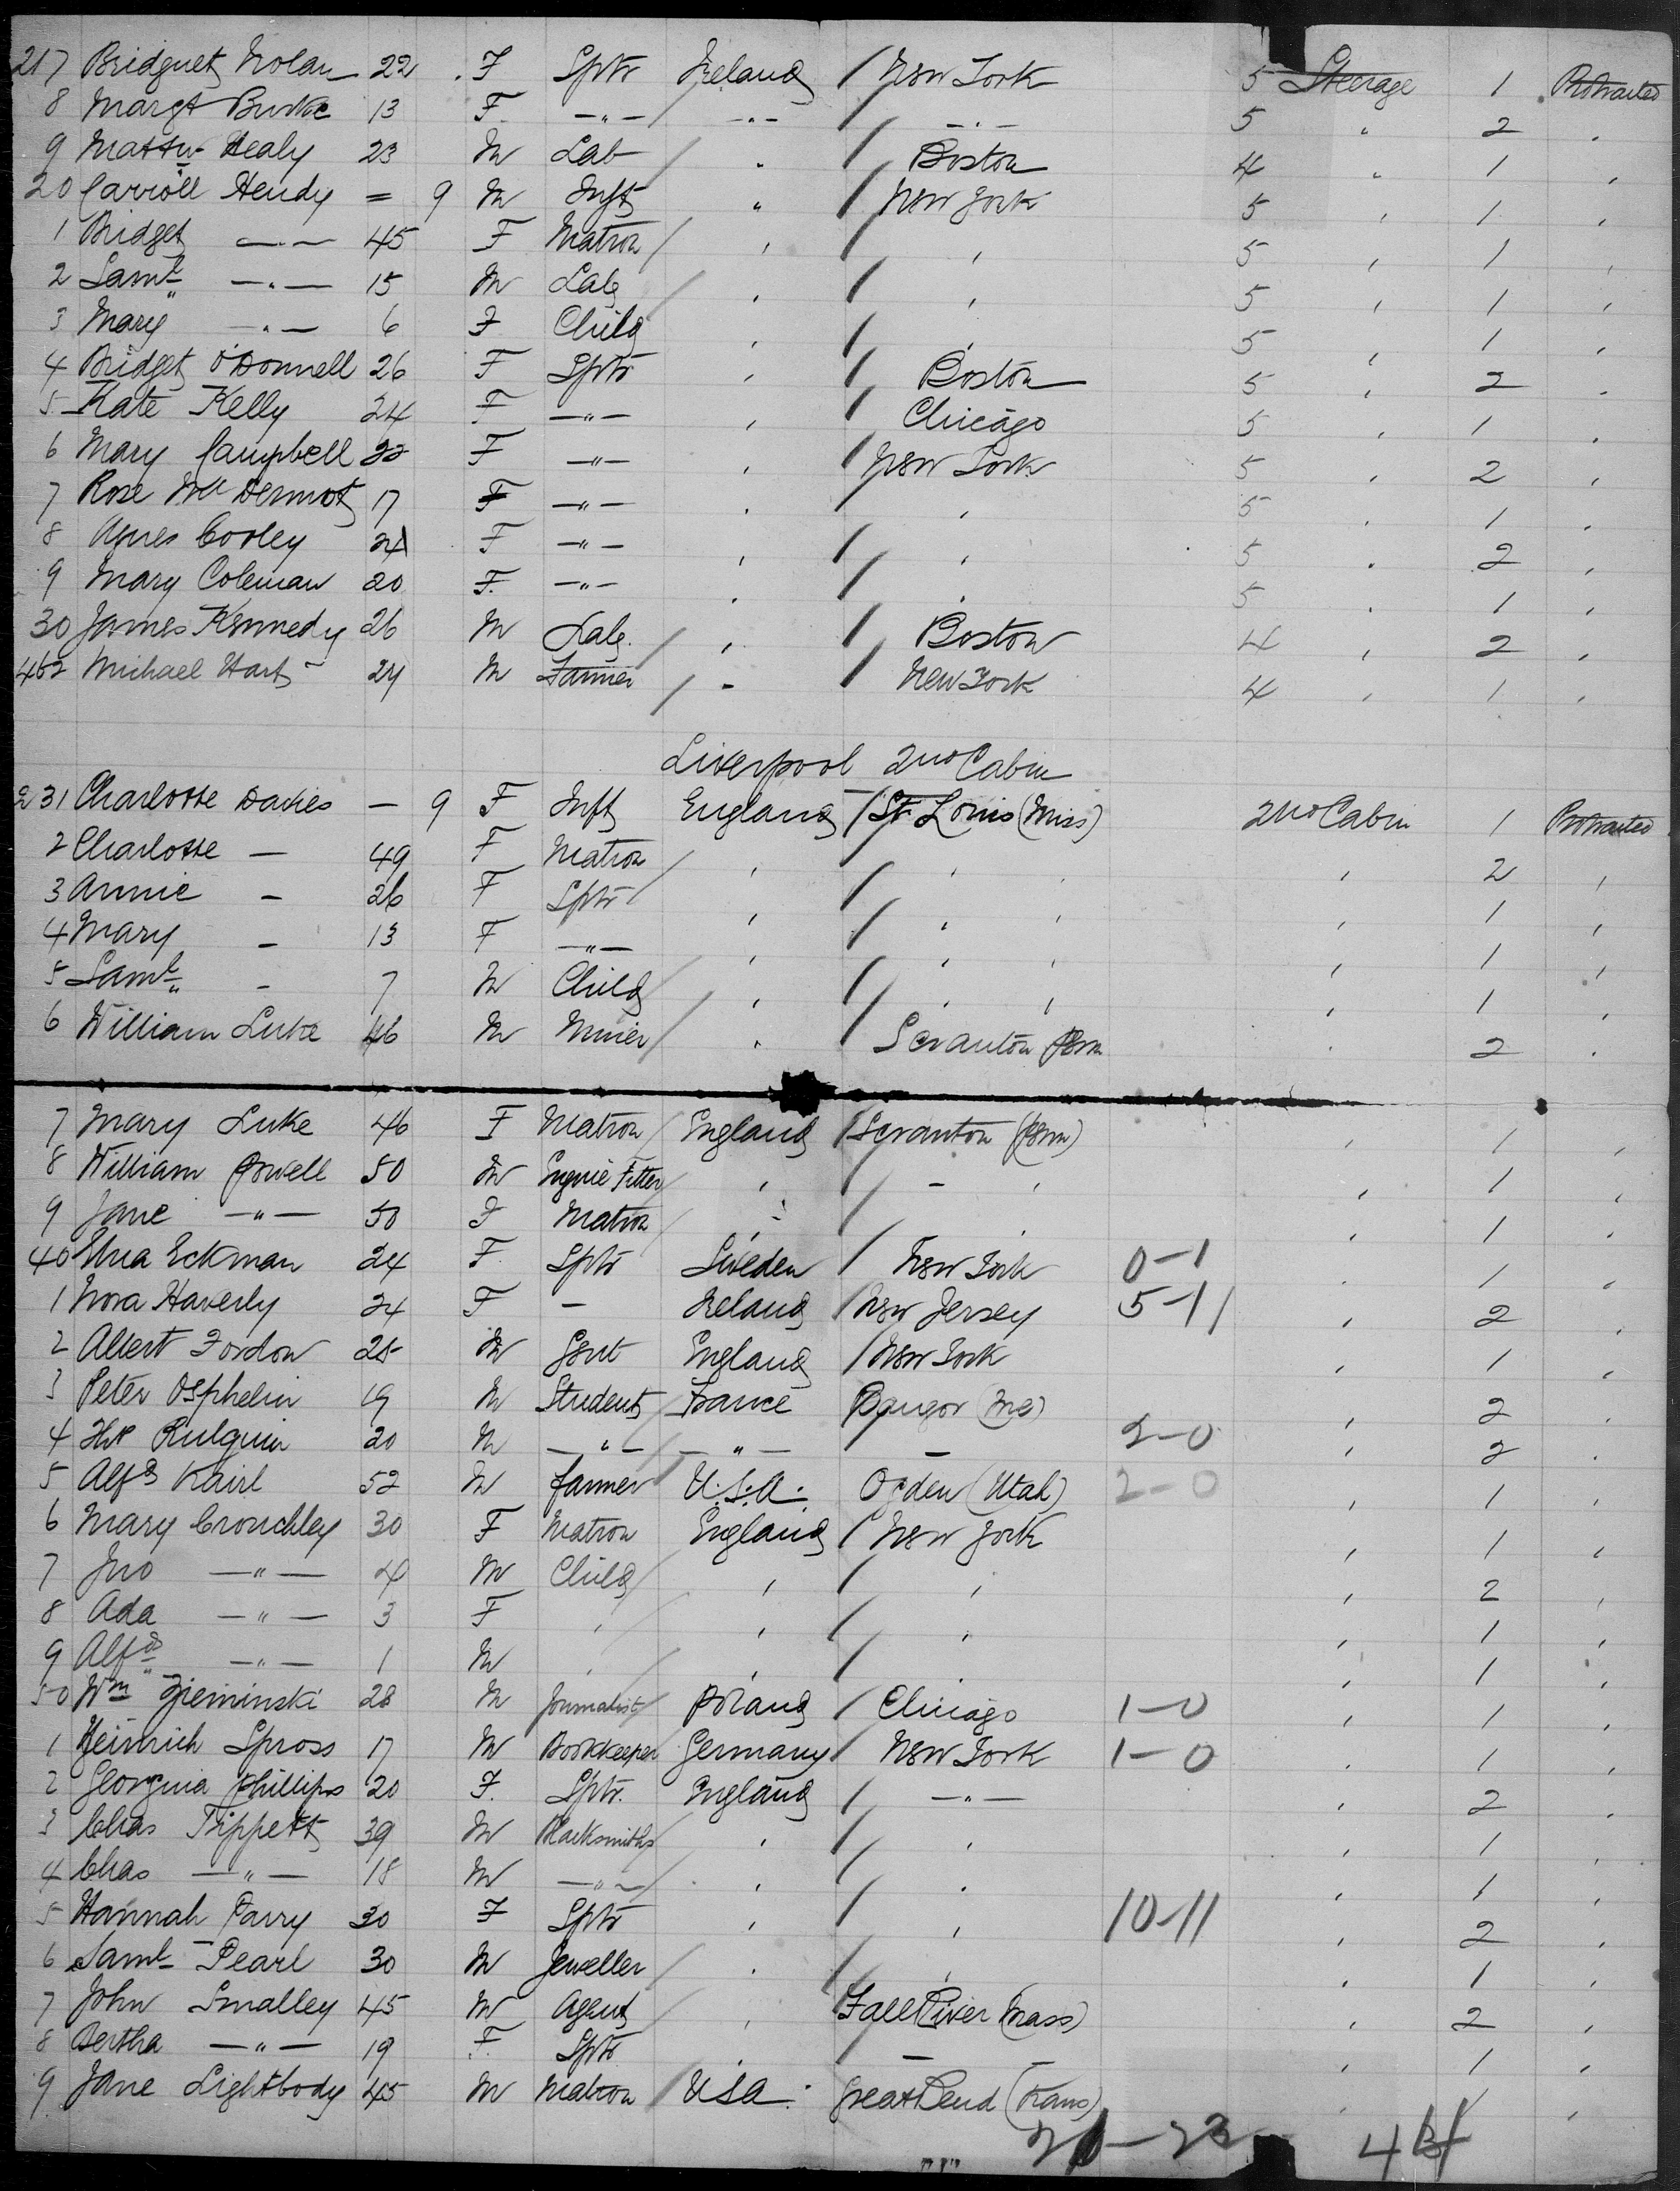 217 Bridguet Nolan 22 F Sptr Ireland / New York 5 Steerage 1 Protracted
8 Margt Burke 13 F. —"— / —"— / —"— 5 " 2 "
9 Mattw Healy 23 M Lab / " / Boston 4 " 1 "
20 Carroll Hendy = 9 M Inft " / New York 5 " 1 "
1 Bridget —"— 45 F Matron / " / " 5 " 1 "
2 Saml —"— 15 M Lab / " / " 5 " 1 "
3 Mary —"— 6 F Child " / " 5 " 1 "
4 Bridget O'Donnell 26 F Sptr " / Boston 5 " 2 "
5 Kate Kelly 24 F —"— " / Chicago 5 " 1 "
6 Mary Campbell 22 F —"— " / New York 5 " 2 "
7 Rose McDermot 17 F —"— " / " 5 " 1 "
8 Agnes Cooley 24 F —"— " / " 5 " 2 "
9 Mary Coleman 20 F. —"— " / " 5 " 1 "
30 James Kennedy 26 M Lab. / " / Boston 4 " 2 "
462 Michael Hart 24 M Farmer / " / New York 4 " 1 "
Liverpool 2nd Cabin
231 Charlotte Davies — 9 F Inft England / St. Louis (Miss) 2nd Cabin 1 Protracted
2 Charlotte — 49 F Matron / " / " " 2 "
3 Annie — 26 F Sptr / " / " " 1 "
4 Mary — 13 F —"— " / " " 1 "
5 Saml — 7 M Child / " / " " 1 "
6 William Luke 46 M Miner / " Scranton Penn " 2 "
7 Mary Luke 46 F Matron / England / Scranton (Penn) " 1 "
8 William Powell 50 M Engine Fitter / " / — " " 1 "
9 Jane —"— 50 F Matron / " " " 1 "
40 Eckman 24 F. Sptr Sweden / New York 0-1 " 1 "
1 Nora Haverly 24 F — Ireland / New Jersey 5-11 " 2 "
2 Albert Fordow 25 M Gent England / New York " 1 "
3 Peter Osphelin 19 M Student / France Bangor (Me) " 2 "
4 Rulguin 20 M —"— —"— — 2-0 " 2 "
5 Alfd Kairl 52 M farmer U.S.A. Ogden (Utah) 2-0 " 1 "
6 Mary Crouchley 30 F Matron England / New York " 1 "
7 Jno —"— 4 M Child / " / " " 2 "
8 Ada —"— 3 F " / " / " " 1 "
9 Alfd —"— 1 M " / " / " " 1 "
50 Wm Zieminski 28 M Journalist / Poland / Chicago 1-0 " 1 "
1 Heinrich Spross 17 M Bookkeeper Germany / New York 1-0 " 1 "
2 Georgina Phillips 20 F. Sptr. England / —"— " 2 "
3 Chas Tippett 39 M Blacksmiths / " / " " 1 "
4 Chas —"— 18 M —"— / " / " " 1 "
5 Hannah Parry 30 F Sptr " / " 10-11 " 2 "
6 Saml Pearl 30 M Jeweller / " / " " 1 "
7 John Smalley 45 M Agent / " Fall River (Mass) " 2 "
8 Bertha —"— 19 F. Sptr " — " 1 "
9 Jane Lightbody 45 M Matron / USA. Great Bend (Kans) " 1 "